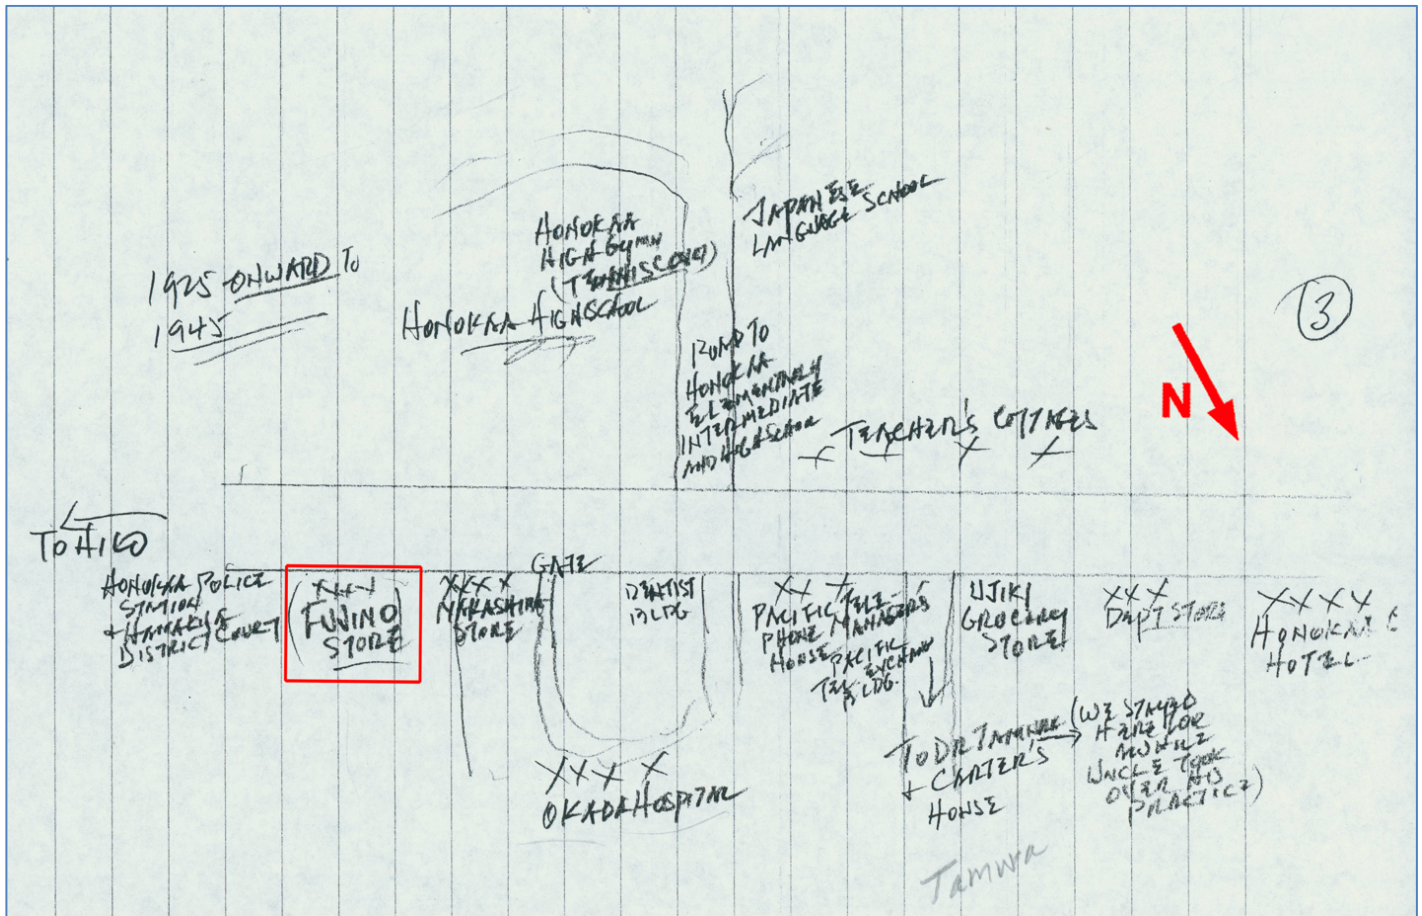 JAPANESE
LANGUAGE SCHOOL
HONOKAA
HIGH GYMN
(TENNIS COURT)
HONOKAA HIGHSCHOOL
1925 ONWARD TO
1945
3
ROAD TO
HONOKAA
ELEMENTARY
INTERMEDIATE
AND HIGHSCHOOL
N
TEACHER'S COTTAGES
X X X X
TO HILO
HONOKAA POLICE
STATION
+ HAMAKUA
DISTRICT COURT
XXX
(FUJINO)
STORE
XXXX
NAKASHIMA
STORE
GATE
DENTIST
BLDG
XX X
PACIFIC TELE-
PHONE MANAGER'S
HOUSE PACIFIC
TEL. EXCHANG
BLDG.
UJIKI
GROCERY
STORE
XXX
DEPT STORE
XXXX
HONOKAA C
HOTEL
XXX X
OKADA HOSPITAL
TO DR TAMURA
+ CARTER'S
HOUSE
(WE STAYED
HERE FOR
AWHILE
UNCLE TOOK
OVER HIS
PRACTICE)
Tamura